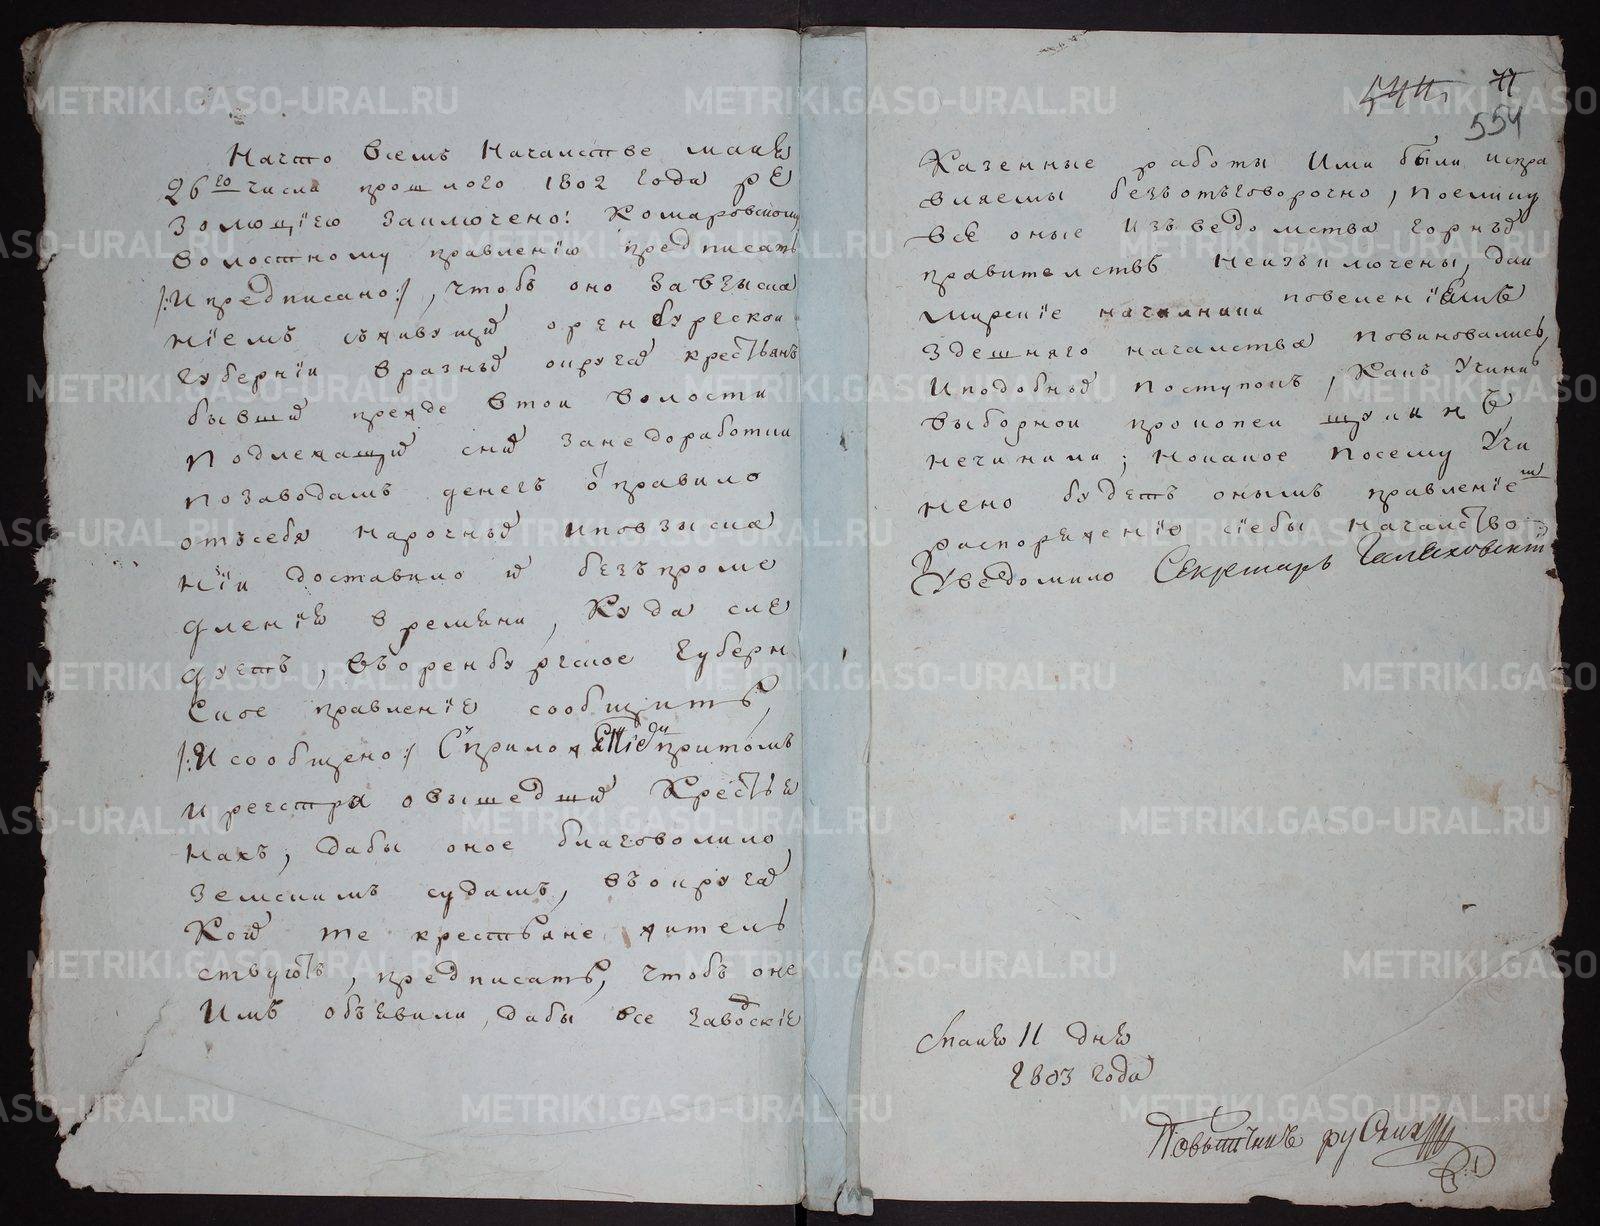 Начто всемъ Началстве маия
26го числа прошлого 1802 года ре
золюцiею заключено: Комаровскому
волостному правленiю предписать
/:И предписано:/, чтобъ оно завзыска
нiемъ съживущих оренбургской
губернiи вразных округах крестьянъ
бывших прежде втой волости
подлежащих сних занедоработки
позаводамъ денегъ отправило
отъсебя нарочных иповзыска
нiи доставило их безъпроме
дленiя времени, Куда сле
дуетъ, въоренбургское губерн
ское правленiе сообщить,
/:И сообщено:/ Сприложенiемъ притомъ
и реестра овышедших Крестья
нахъ, дабы оное благоволило
земскимъ судамъ, въокругах
Коих те крестьяне жителъ
ствуютъ, предписать, чтобъ оне
Имъ объявили, дабы все заводскiе
544 71
554
Казенные работы Ими были испра
вляемы безъотъговорочно, поелику
все оные изъ ведомства горных
правителствъ неизъключены, даи
мирскiе началники повеленiямъ
здешняго началства повиновались,
иподобных поступокъ, Какъ учинилъ
выборной прокопей
нечинили; Нокакое посему учи
нено будетъ онымъ правленiемъ
распоряженiе сiебы началство
Уведомило Секретарь
маия 11 дня
1803 года
Повытчикъ
METRIKI.GASO-URAL.RU